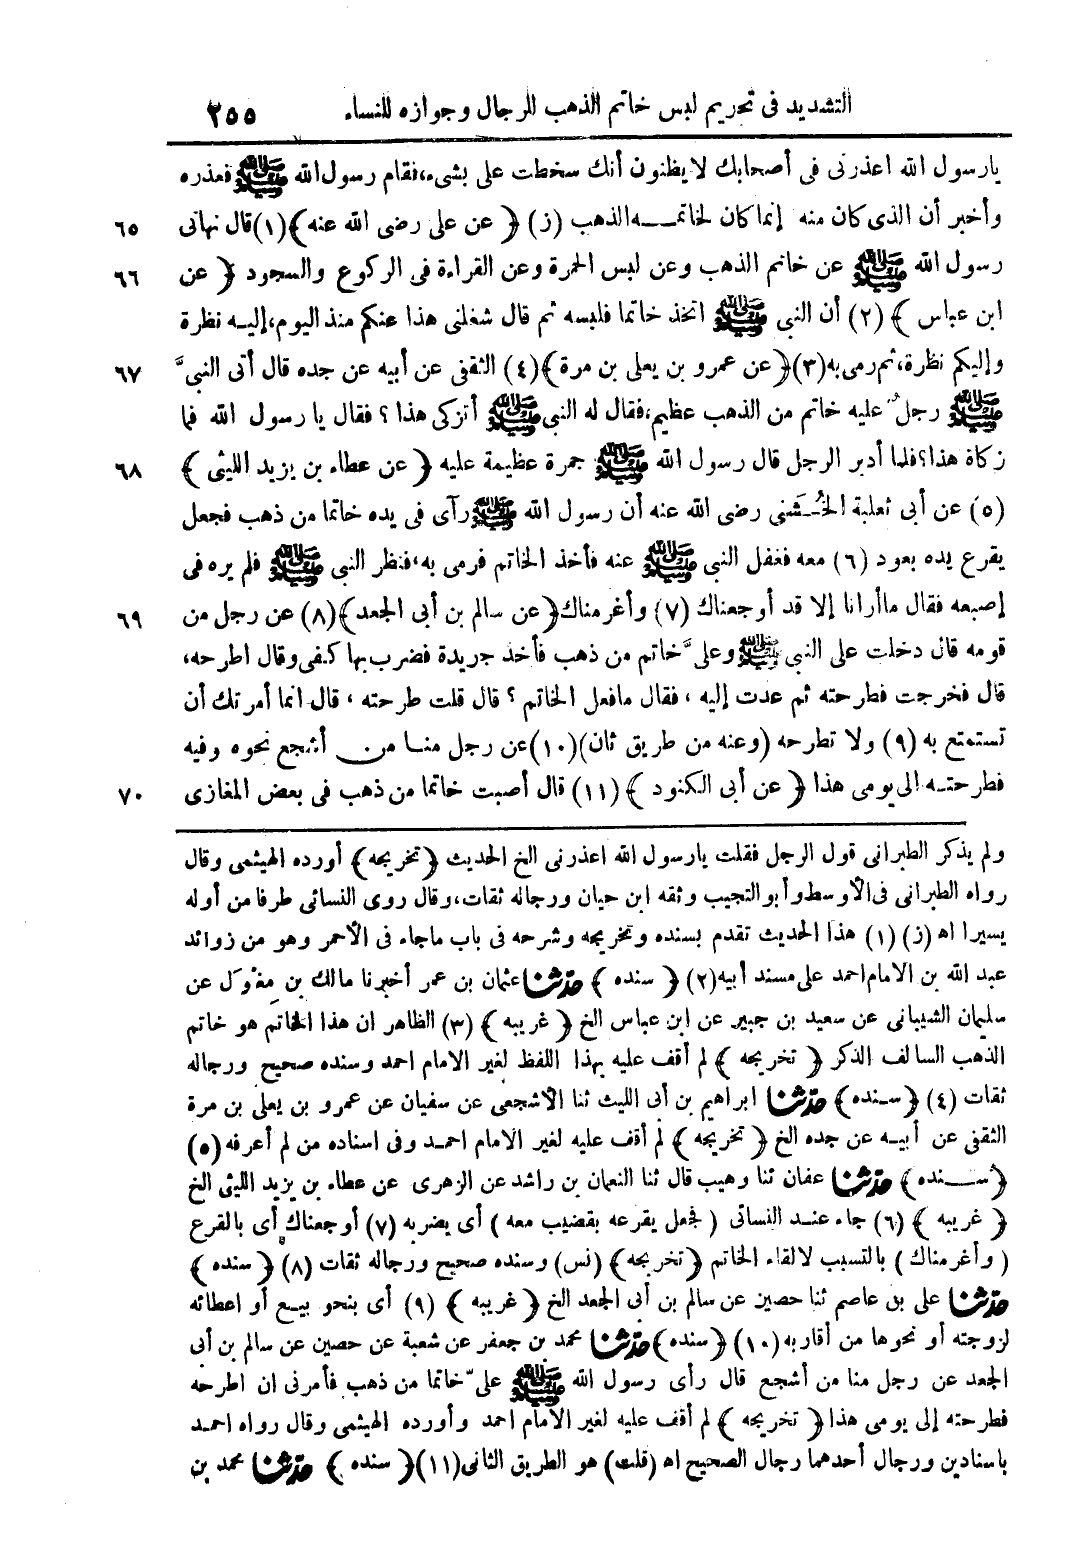 التشديد فى تحريم لبس خاتم الذهب للرجال وجوازه للنساء ٢٥٥
يارسول الله اعذرنى فى أصحابك لا يظنون أنك سخطت على بشىء، فقام رسول الله ﷺ فعذره
وأخبر أن الذى كان منه إنما كان لخاتمه الذهب (ز) ﴿ عن على رضى الله عنه ﴾ (١) قال نهانى ٦٥
رسول الله ﷺ عن خاتم الذهب وعن لبس الحمرة وعن القراءة فى الركوع والسجود ﴿ عن ٦٦
ابن عباس ﴾ (٢) أن النبى ﷺ اتخذ خاتما فلبسه ثم قال شغلنى هذا عنكم منذ اليوم، إليه نظرة
وإليكم نظرة، ثم رمى به (٣) ﴿ عن عمرو بن يعلى بن مرة ﴾ (٤) الثقفى عن أبيه عن جده قال أتى النبىَّ ٦٧
ﷺ رجلٌ عليه خاتم من الذهب عظيم، فقال له النبى ﷺ أتزكى هذا؟ فقال يا رسول الله فما
زكاة هذا؟ فلما أدبر الرجل قال رسول الله ﷺ جمرة عظيمة عليه ﴿ عن عطاء بن يزيد الليثى ﴾ ٦٨
(٥) عن أبى ثعلبة الخُشَنى رضى الله عنه أن رسول الله ﷺ رآى فى يده خاتما من ذهب فجعل
يقرع يده بعود (٦) معه فغفل النبى ﷺ عنه فأخذ الخاتم فرمى به، فنظر النبى ﷺ فلم يره فى
إصبعه فقال ما أرانا إلا قد أوجعناك (٧) وأغرمناك ﴿ عن سالم بن أبى الجعد ﴾ (٨) عن رجل من ٦٩
قومه قال دخلت على النبى ﷺ وعلىَّ خاتم من ذهب فأخذ جريدة فضرب بها كفى وقال اطرحه،
قال فخرجت فطرحته ثم عدت إليه، فقال مافعل الخاتم؟ قال قلت طرحته، قال انما أمرتك أن
تستمتع به (٩) ولا تطرحه (وعنه من طريق ثان) (١٠) عن رجل منا من أشجع نحوه وفيه
فطرحته الى يومى هذا ﴿ عن أبى الكنود ﴾ (١١) قال أصبت خاتما من ذهب فى بعض المغازى ٧٠
ولم يذكر الطبرانى قول الرجل فقلت يارسول الله اعذرنى الخ الحديث ﴿تخريجه﴾ أورده الهيثمى وقال
رواه الطبرانى فى الأوسط وأبو النجيب وثقه ابن حيان ورجاله ثقات، وقال روى النسائى طرفا من أوله
يسيرا اه (ز) (١) هذا الحديث تقدم بسنده وتخريجه وشرحه فى باب ماجاء فى الأحمر وهو من زوائد
عبد الله بن الامام احمد على مسند أبيه (٢) ﴿ سنده ﴾ حدثنا عثمان بن عمر أخبرنا مالك بن مغول عن
سليمان الشيبانى عن سعيد بن جبير عن ابن عباس الخ ﴿ غريبه ﴾ (٣) الظاهر ان هذا الخاتم هو خاتم
الذهب السالف الذكر ﴿ تخريجه ﴾ لم أقف عليه بهذا اللفظ لغير الامام احمد وسنده صحيح ورجاله
ثقات (٤) ﴿ سنده ﴾ حدثنا ابراهيم بن أبى الليث ثنا الأشجعى عن سفيان عن عمرو بن يعلى بن مرة
الثقفى عن أبيه عن جده الخ ﴿ تخريجه ﴾ لم أقف عليه لغير الامام احمد وفى اسناده من لم أعرفه (٥)
﴿ سنده ﴾ حدثنا عفان ثنا وهيب قال ثنا النعمان بن راشد عن الزهرى عن عطاء بن يزيد الليثى الخ
﴿ غريبه ﴾ (٦) جاء عند النسائى ( فجعل يقرعه بقضيب معه ) أى يضربه (٧) أوجعناك أى بالقرع
( وأغرمناك ) بالتسبب لالقاء الخاتم ﴿تخريجه﴾ (نس) وسنده صحيح ورجاله ثقات (٨) ﴿ سنده ﴾
حدثنا على بن عاصم ثنا حصين عن سالم بن أبى الجعد الخ ﴿ غريبه ﴾ (٩) أى بنحو بيع أو اعطائه
لزوجته أو نحوها من أقاربه (١٠) ﴿سنده﴾ حدثنا محمد بن جعفر عن شعبة عن حصين عن سالم بن أبى
الجعد عن رجل منا من أشجع قال رأى رسول الله ﷺ علىّ خاتما من ذهب فأمرنى ان اطرحه
فطرحته إلى يومى هذا ﴿ تخريجه ﴾ لم أقف عليه لغير الامام احمد وأورده الهيثمى وقال رواه احمد
باسنادين ورجال أحدهما رجال الصحيح اه (قلت) هو الطريق الثانى (١١) ﴿ سنده ﴾ حدثنا محمد بن